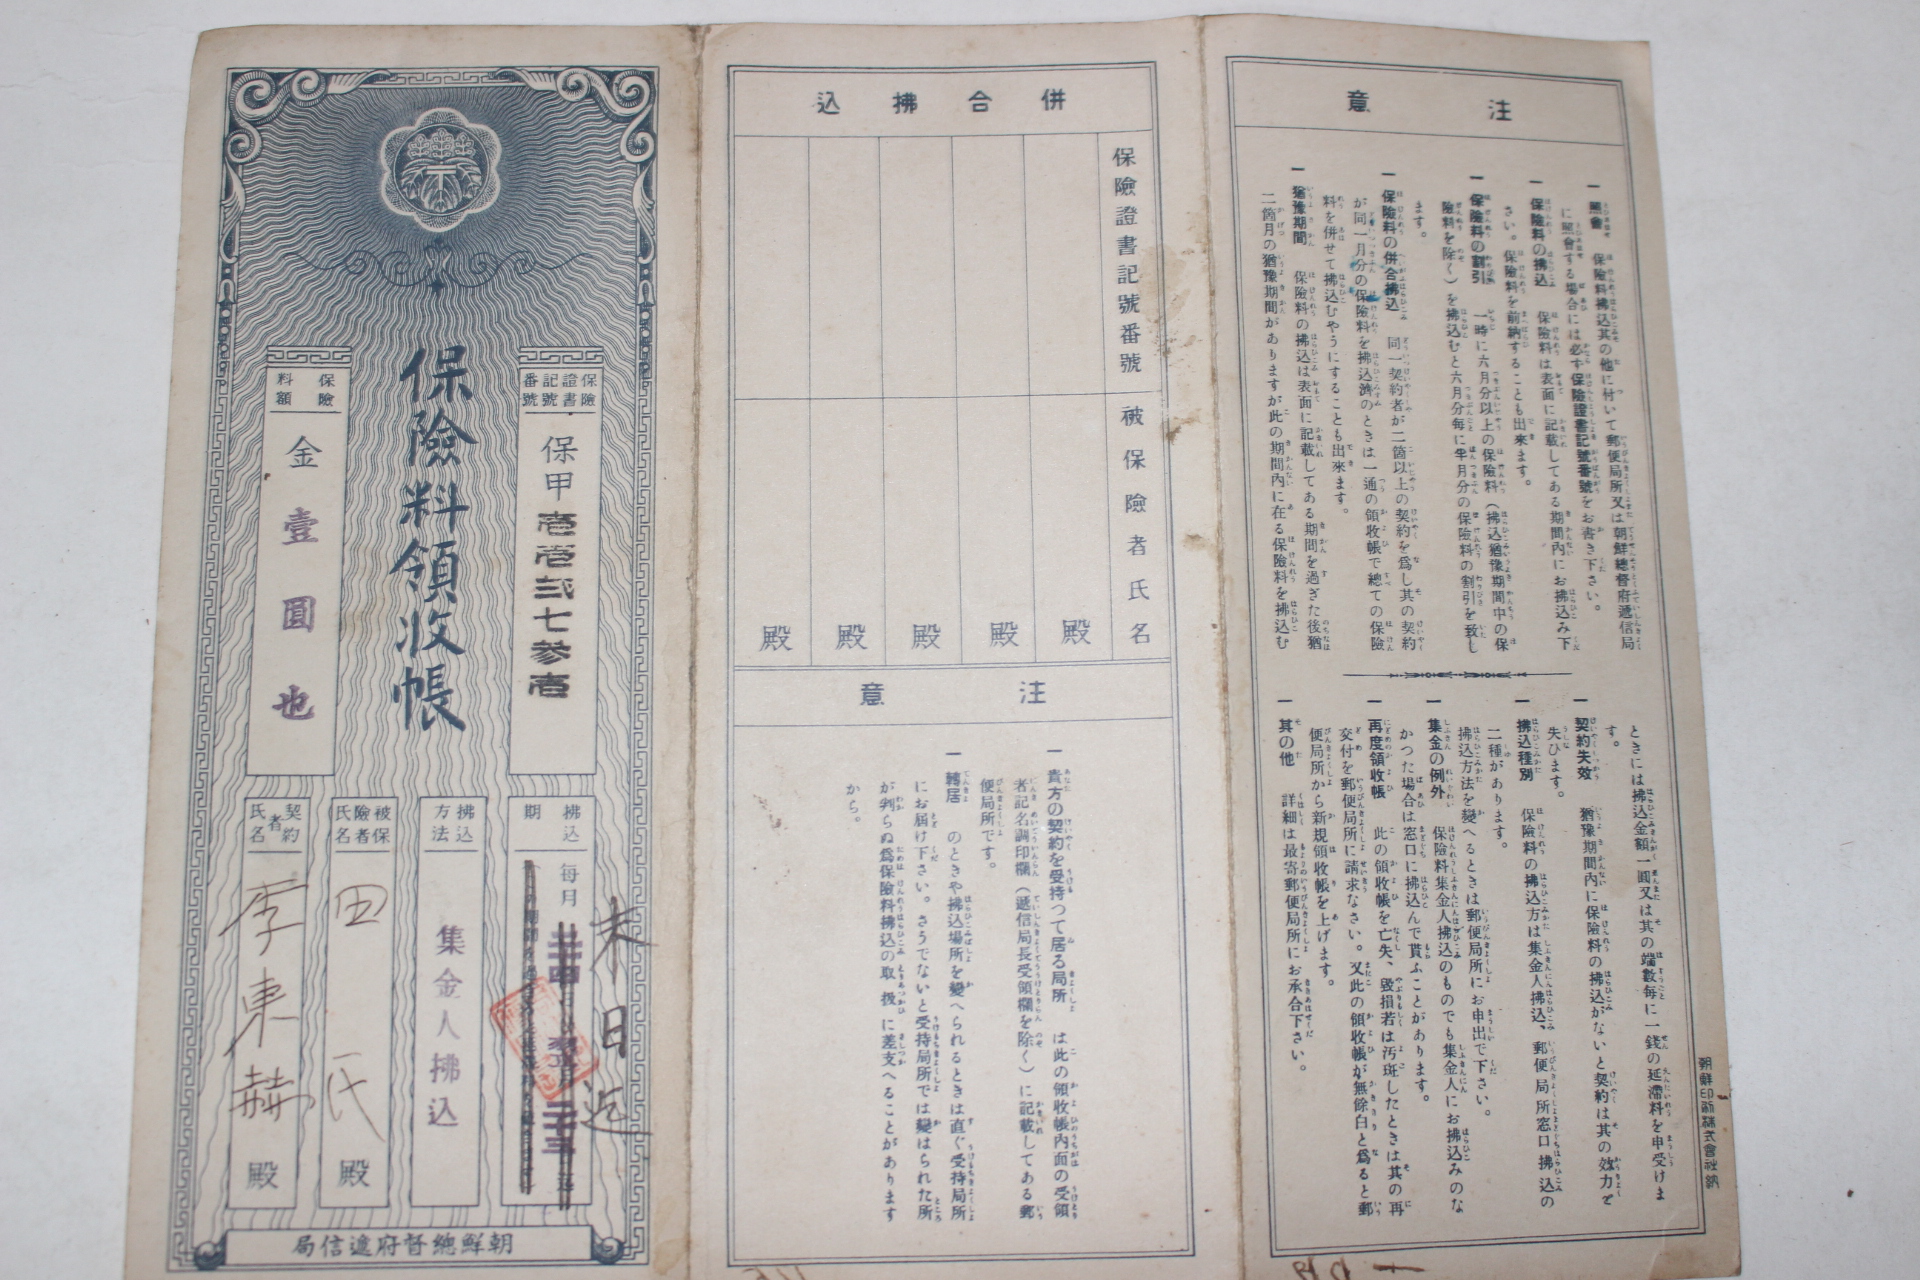 保險料領收帳
保險證書記號番號
保甲壱壱弐七参壱
保險料額
金壹圓也
拂込期
毎月
末日迄
拂込方法
集金人拂込
被保險者氏名
田氏殿
契約者氏名
李東赫殿
朝鮮總督府遞信局
併合拂込
保險證書記號番號
被保險者氏名
殿
殿
殿
殿
殿
注意
一 貴方の契約を受持つて居る局所 は此の領收帳内面の受領
者記名調印欄(遞信局長受領欄を除く)に記載してある郵
便局所です。
一 轉居 のときや拂込場所を變へられるときは直ぐ受持局所
にお届け下さい。さうでないと受持局所では變はられた所
が判らぬ爲保險料拂込の取扱に差支へることがあります
から。
注意
一 照會 保險料拂込其の他に付いて郵便局所又は朝鮮總督府遞信局
に照會する場合には必ず保險證書記號番號をお書き下さい。
一 保險料の拂込 保險料は表面に記載してある期間内にお拂込み下
さい。保險料を前納することも出來ます。
一 保險料の割引 一時に六月分以上の保險料(拂込猶豫期間中の保
險料を除く)を拂込むと六月分毎に半月分の保險料の割引を致し
ます。
一 保險料の併合拂込 同一契約者が二箇以上の契約を爲し其の契約
が同一月分の保險料を拂込濟のときは一通の領收帳で總ての保險
料を併せて拂込むやうにすることも出來ます。
一 猶豫期間 保險料の拂込は表面に記載してある期間を過ぎた後猶
二箇月の猶豫期間がありますが此の期間内に在る保險料を拂込む
ときには拂込金額一圓又は其の端數毎に一錢の延滯料を申受けま
す。
一 契約失效 猶豫期間内に保險料の拂込がないと契約は其の效力を
失ひます。
一 拂込種別 保險料の拂込方は集金人拂込、郵便局所窓口拂込の
二種があります。
拂込方法を變へるときは郵便局所にお申出で下さい。
一 集金の例外 保險料集金人拂込のものでも集金人にお拂込みのな
かつた場合は窓口に拂込んで貰ふことがあります。
一 再度領收帳 此の領收帳を亡失、毀損若は汚斑したときは其の再
交付を郵便局所に請求なさい。又此の領收帳が無餘白と爲ると郵
便局所から新規領收帳を上げます。
一 其の他 詳細は最寄郵便局所にお承合下さい。
朝鮮印刷株式會社納